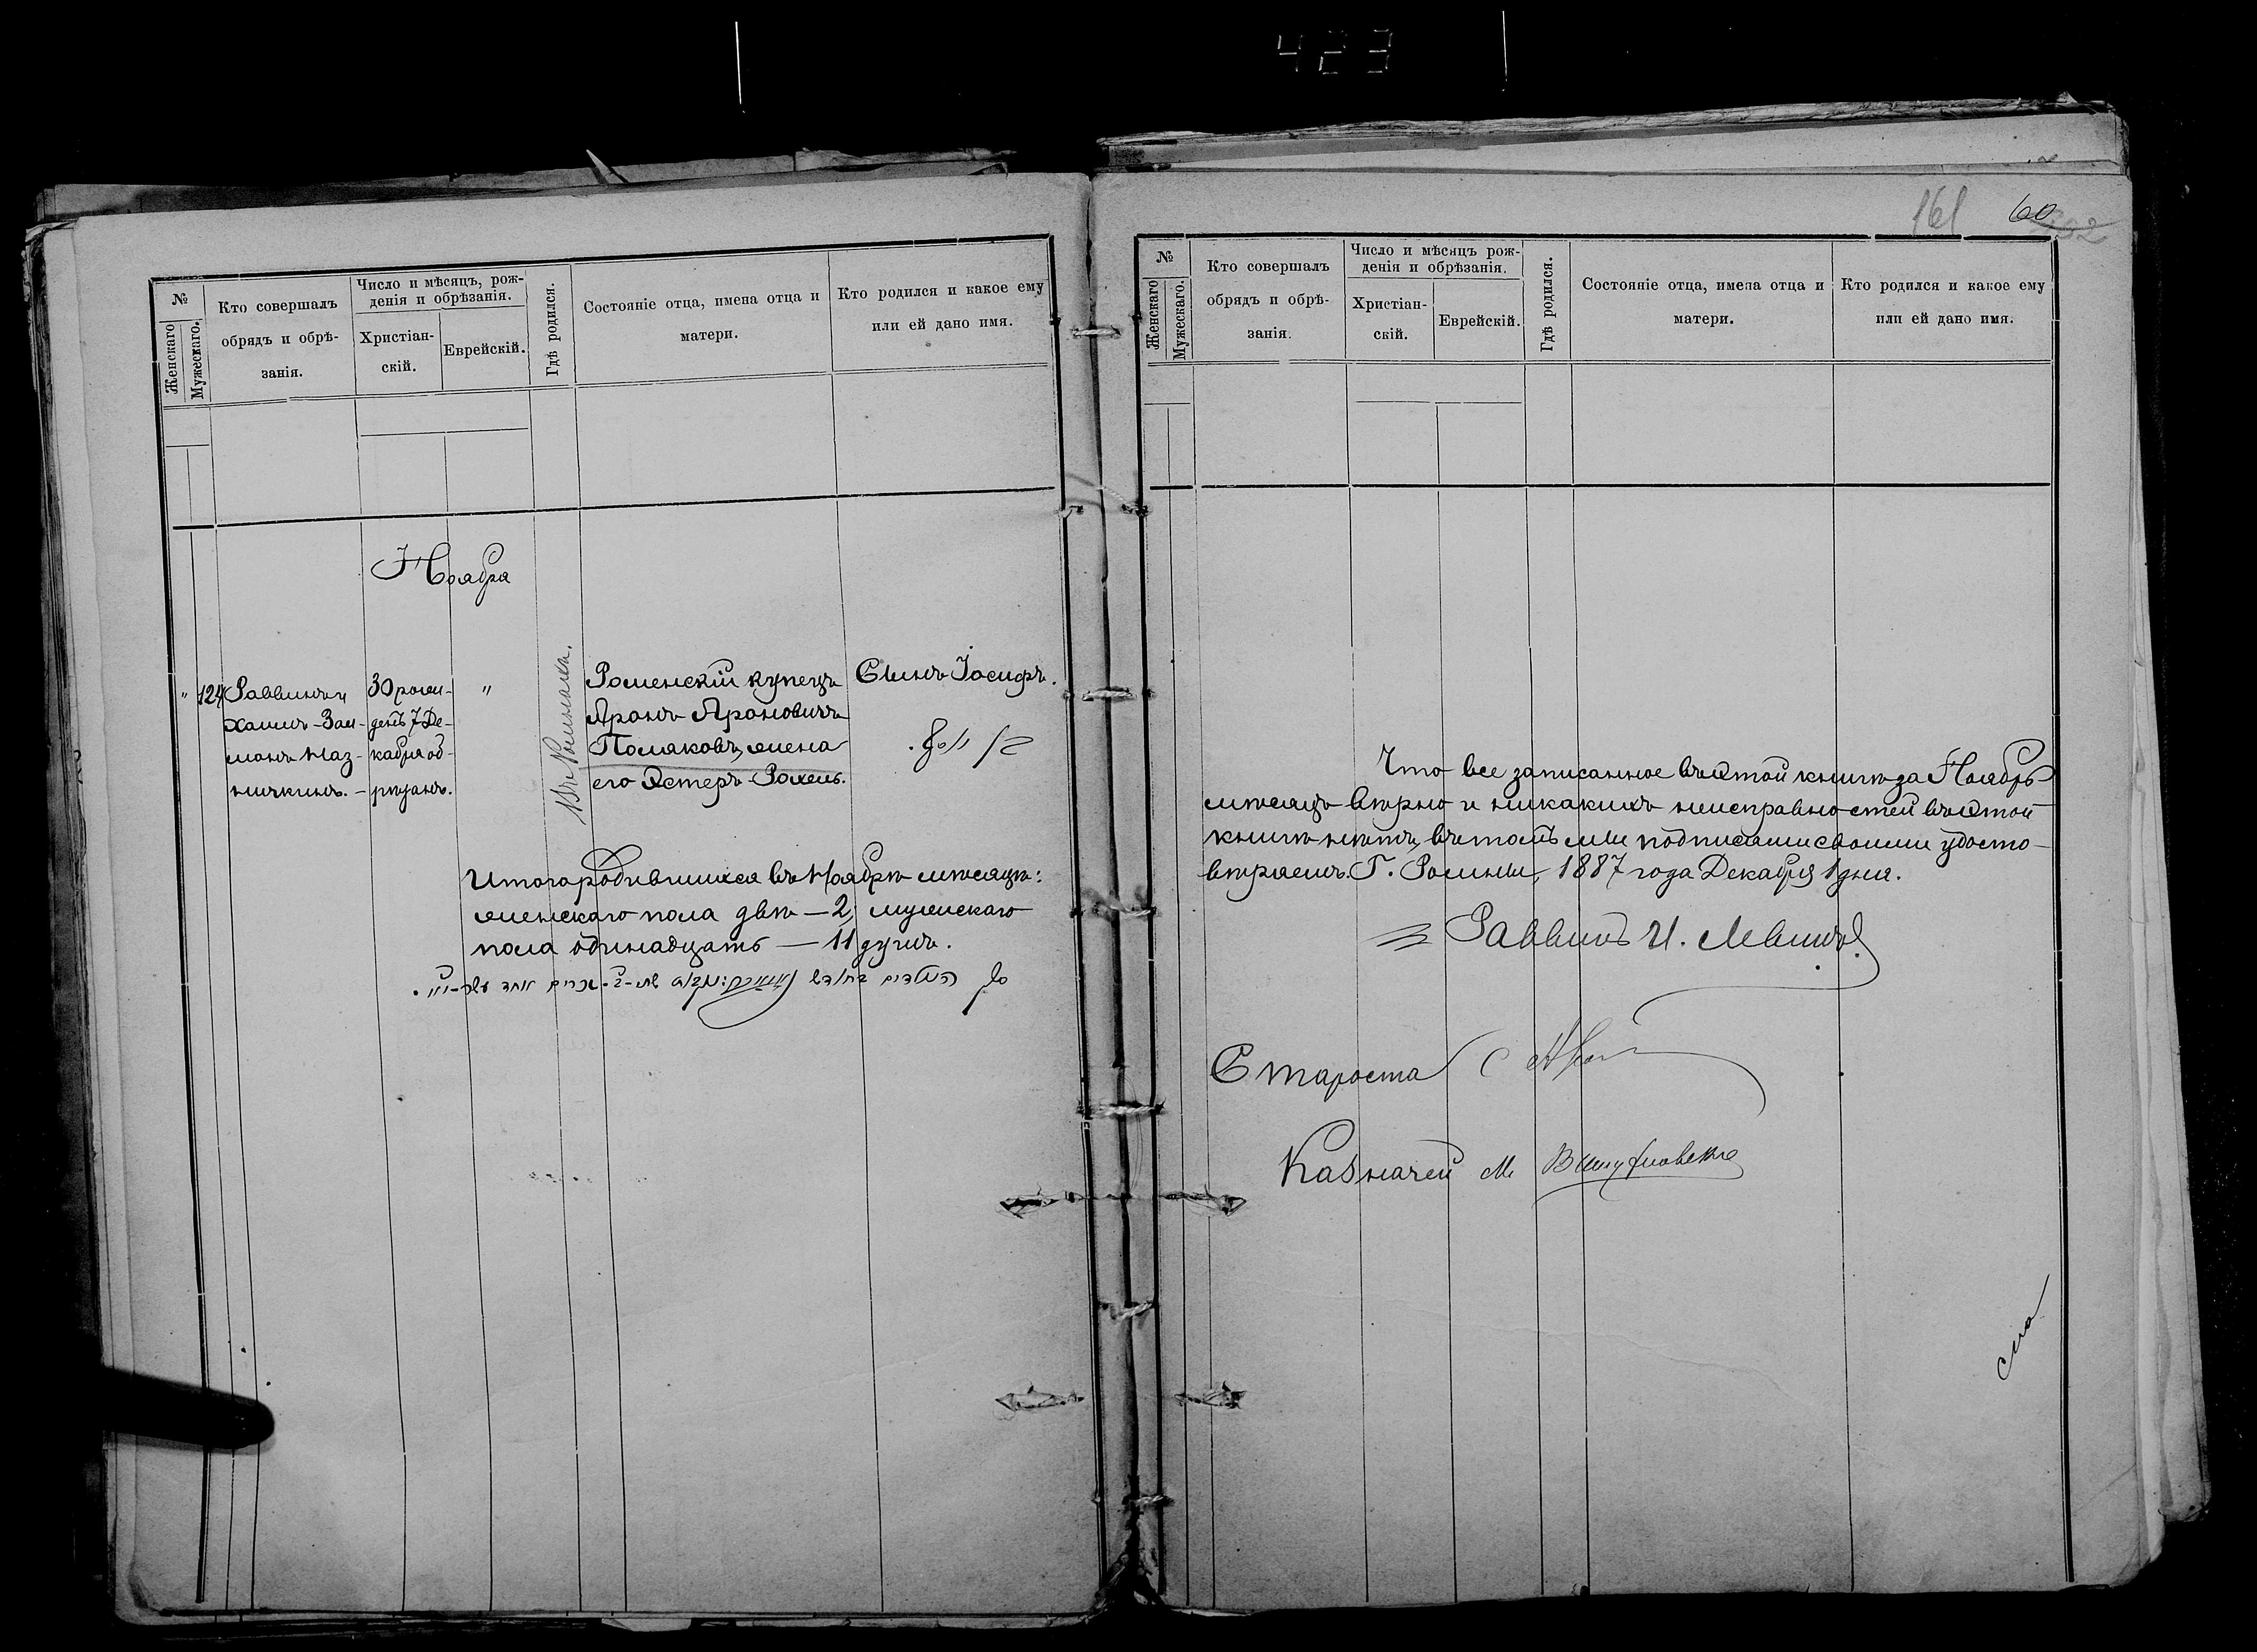 423
№
Женскаго
Мужескаго.
Кто совершалъ
обрядъ и обрѣ-
занія.
Число и мѣсяцъ, рож-
денія и обрѣзанія.
Христіан-
скій.
Еврейскій.
Гдѣ родился.
Состояніе отца, имена отца и
матери.
Кто родился и какое ему
или ей дано имя.
Ноября
" 124
Раввинъ и
Хаимъ-Зал-
манъ Наз-
ничкинъ. -
30 рож-
денъ 7 Де-
кабря об-
рѣзанъ.
"
Въ Ромнахъ.
Роменскій купецъ
Аронъ Ароновичъ
Поляковъ, жена
его Эстеръ-Рохель.
Сынъ Іосифъ.
בן יוסף.
Итого родившихся въ Ноябрѣ мѣсяцѣ:
женскаго пола двѣ — 2, мужескаго
пола одинадцать — 11 душъ.
161 60
№
Женскаго
Мужескаго.
Кто совершалъ
обрядъ и обрѣ-
занія.
Число и мѣсяцъ рож-
денія и обрѣзанія.
Христіан-
скій.
Еврейскій.
Гдѣ родился.
Состояніе отца, имена отца и
матери.
Кто родился и какое ему
или ей дано имя.
Что все записанное въ этой книгѣ за Ноябрь
мѣсяцъ вѣрно и никакихъ неисправностей въ этой
книгѣ нѣтъ, въ томъ мы подписами своими удосто-
вѣряемъ. Г. Ромны, 1887 года Декабря 1 дня.
Раввинъ И.
Староста
Казначей М